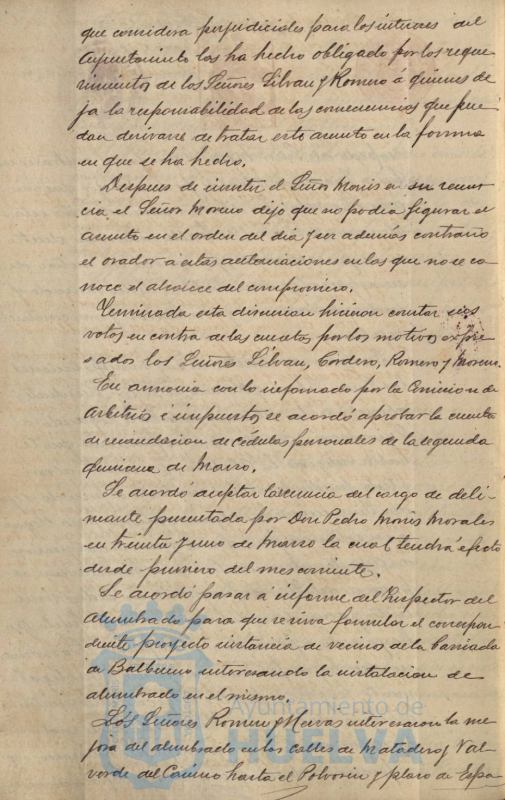 que considera perjudiciales para los intereses del
Ayuntamiento los ha hecho obligado por los reque
rimientos de los Señores Silvan y Romero á quienes de
ja la responsabilidad de las consecuencias que pue
dan derivarse de tratar este asunto en la forma
en que se ha hecho.
Despues de insistir el Señor Monis en su renun
cia, el Señor Moreno dijo que no podia figurar el
asunto en el orden del dia y ser además contrario
el orador á estas autorizaciones en las que no se co
noce el alcance del compromiso.
Terminada esta discusion hicieron constar sus
votos en contra de las cuentas por los motivos expre
sados los Señores Silvan, Cordero, Romero y Moreno.
En armonia con lo informado por la Comision de
Arbitrios é impuestos se acordó aprobar la cuenta
de recaudacion de cédulas personales de la segunda
quincena de Marzo.
Se acordó aceptar la renuncia del cargo de deli-
neante presentada por Don Pedro Monis Morales
en treinta y uno de Marzo la cual tendrá efecto
desde primero del mes corriente.
Se acordó pasar á informe del Inspector del
alumbrado para que se sirva formular el correspon
diente proyecto instancia de vecinos de la barriada
de Balbueno interesando la instalacion de
alumbrado en el mismo.
Los Señores Romero y Nervas interesaron la me
jora del alumbrado en las calles de Matadero y Val
verde del Camino hasta el Polvorin y plaza de Espa
Ayuntamiento de
HUELVA